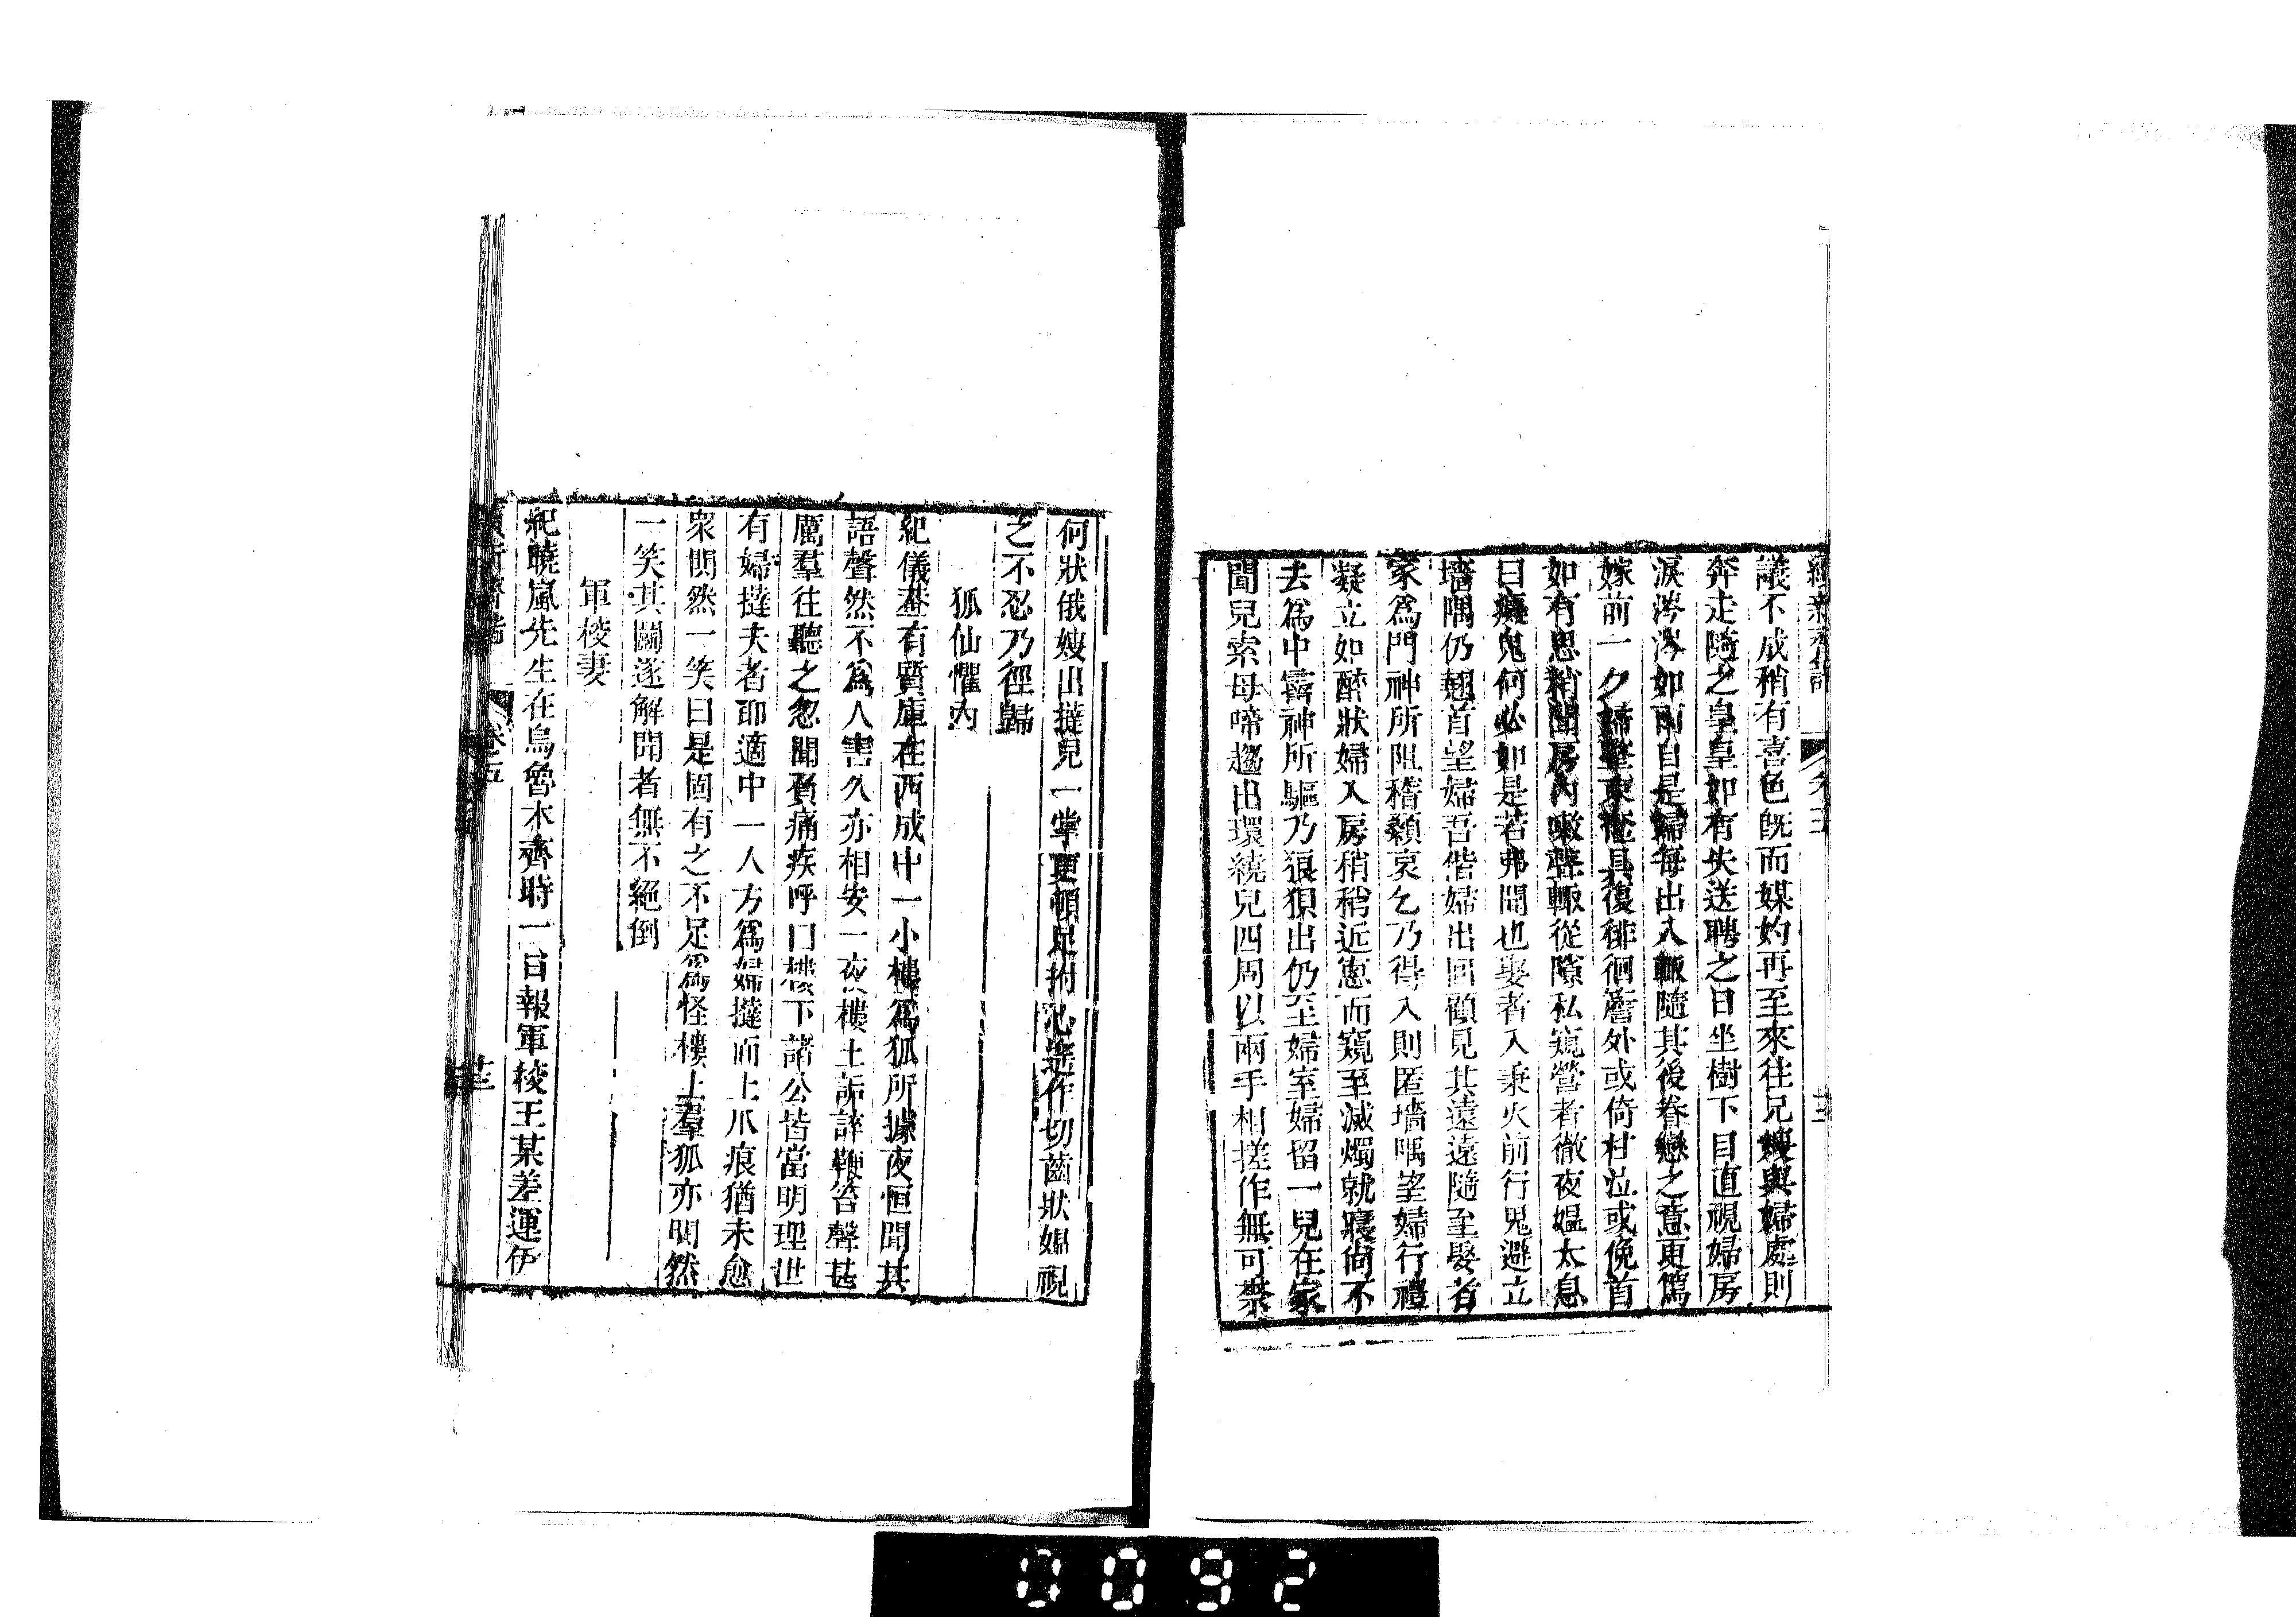 續新齊諧　卷五　十三
議不成稍有喜色旣而媒妁再至來往兄嫂與婦處則
奔走隨之皇皇如有失送聘之日坐樹下目直視婦房
淚涔涔如雨自是婦每出入輒隨其後眷戀之意更篤
嫁前一夕婦整束奩具復徘徊簷外或倚柱泣或俛首
如有思稍聞房內嗽聲輒從隙私窺營者徹夜媼太息
曰癡鬼何必如是若弗聞也娶者入秉火前行鬼避立
墻隅仍翹首望婦吾偕婦出回顧見其遠遠隨至娶者
家爲門神所阻稽顙哀乞乃得入則匿墻隅望婦行禮
凝立如醉狀婦入房稍稍近窻而窺至滅燭就寢尚不
去爲中霤神所驅乃狼狽出仍至婦室婦留一兒在家
聞兒索母啼趨出環繞兒四周以兩手相搓作無可柰
何狀俄嫂出撻兒一掌更頓足拊心遙作切齒狀媼視
之不忍乃徑歸
狐仙懼內
紀儀菴有質庫在西成中一小樓爲狐所據夜恒聞其
語聲然不爲人害久亦相安一夜樓上詬誶鞭笞聲甚
厲羣往聽之忽聞負痛疾呼曰樓下諸公皆當明理世
有婦撻夫者耶適中一人方爲婦撻面上爪痕猶未愈
衆閧然一笑曰是固有之不足爲怪樓上羣狐亦閧然
一笑其鬭遂解聞者無不絕倒
軍校妻
紀曉嵐先生在烏魯木齊時一日報軍校王某差運伊
續新齊諧　卷五　十三